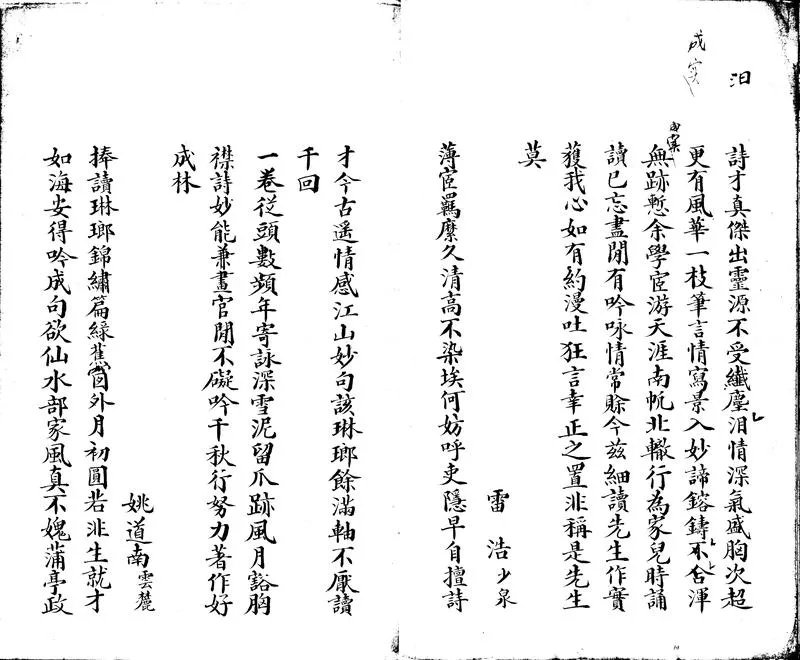 汩
成
实
詩才真傑出靈源不受纖塵汨情深氣盛胸次超
更有風華一枝筆言情寫景入妙諦鎔鑄不舍渾
無跡慙余學宦游天涯南帆北轍行為家兒時誦
讀已忘盡閒有吟咏情常賒今茲細讀先生作實
獲我心如有約漫吐狂言幸正之置非稱是先生
莫
雷浩少泉
薄宦羈縻久清高不染埃何妨呼吏隱早自擅詩
才今古遙情感江山妙句該琳瑯餘滿軸不厭讀
千回
一卷從頭數頻年寄詠深雪泥留爪跡風月豁胸
襟詩妙能兼畫官閒不礙吟千秋行努力著作好
成林
姚道南雲麓
捧讀琳瑯錦繡篇綠蕉窗外月初圓若非生就才
如海安得吟成句欲仙水部家風真不媿蒲亭政